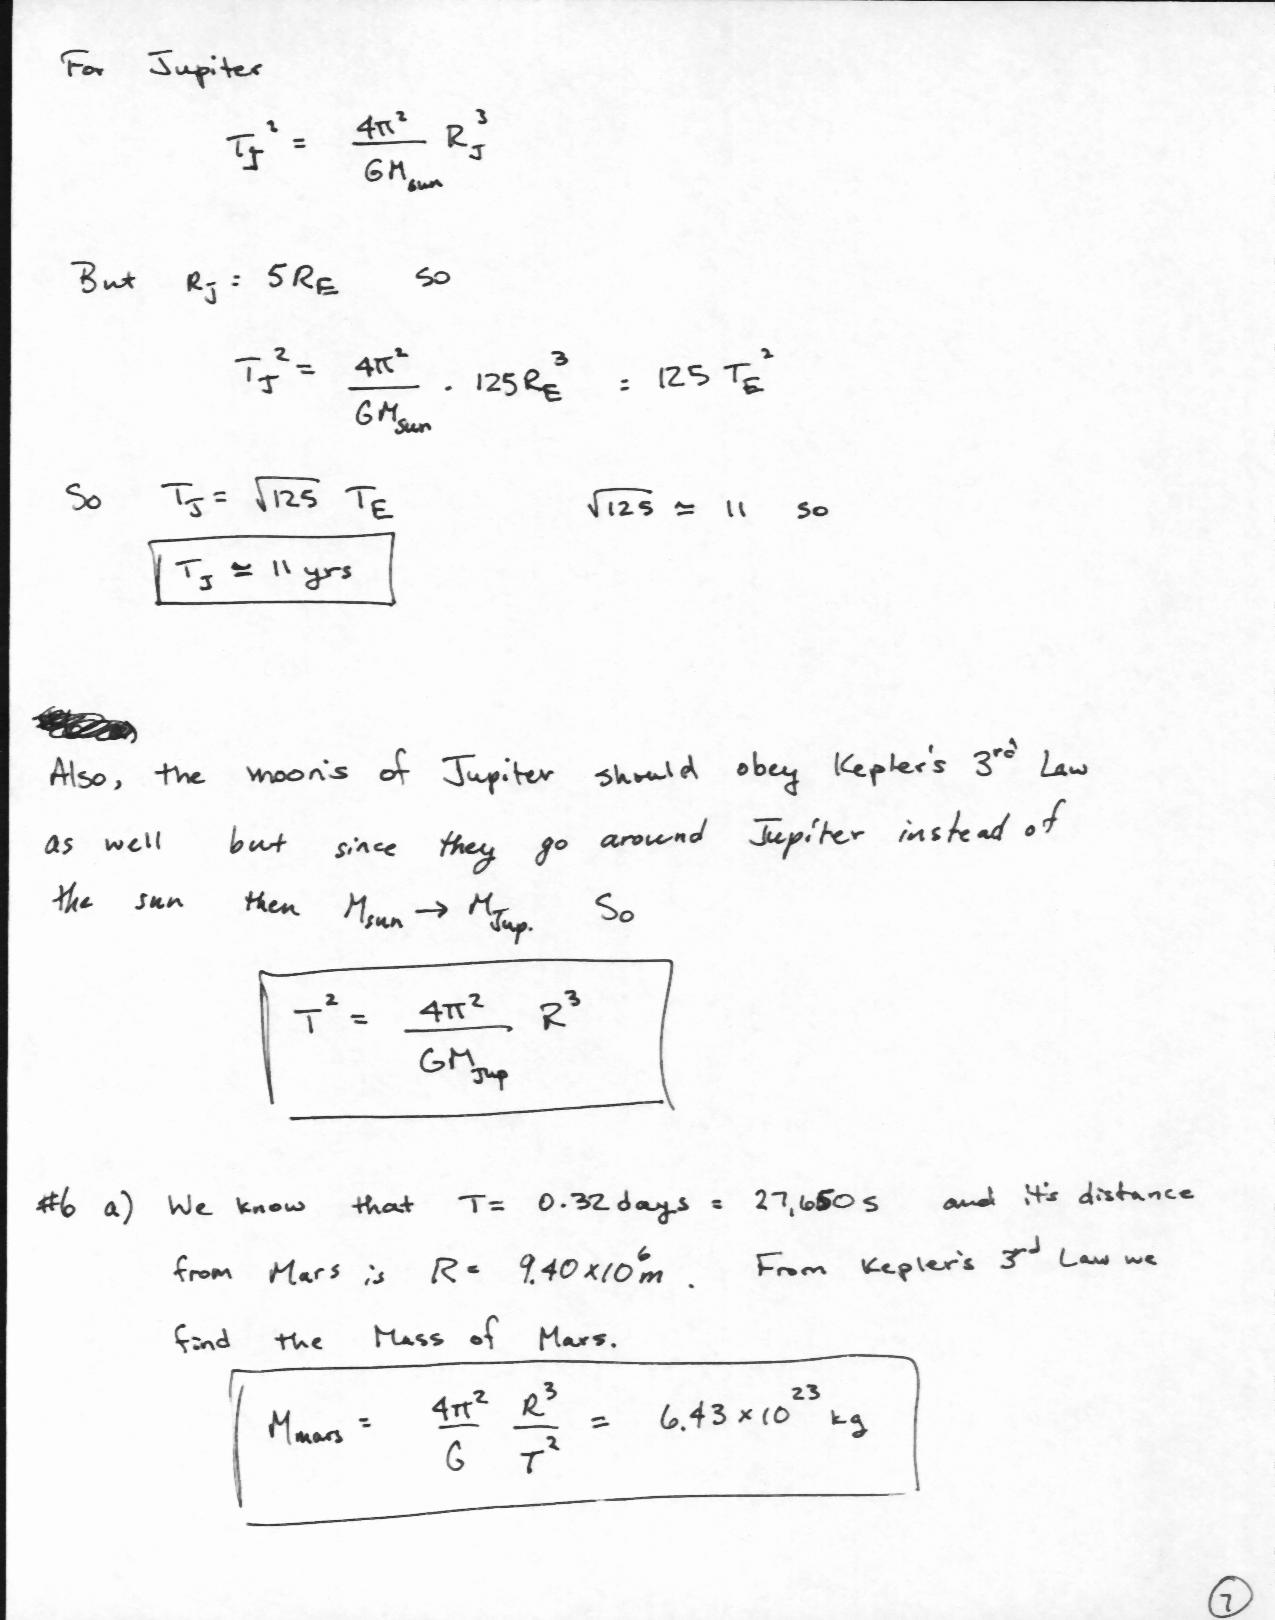 For Jupiter
T_J² = 4π²/GM_sun R_J³
But R_J = 5R_E so
T_J² = 4π²/GM_sun · 125R_E³ = 125 T_E²
So T_J = √125 T_E √125 ≃ 11 so
T_J ≃ 11 yrs
Also, the moon's of Jupiter should obey Kepler's 3rd Law
as well but since they go around Jupiter instead of
the sun then M_sun → M_Jup. So
T² = 4π²/GM_Jup R³
#6 a) We know that T = 0.32 days = 27,650 s and it's distance
from Mars is R = 9.40 x 10⁶ m. From Kepler's 3rd Law we
find the Mass of Mars.
M_mars = 4π²/G R³/T² = 6.43 x 10²³ kg
7